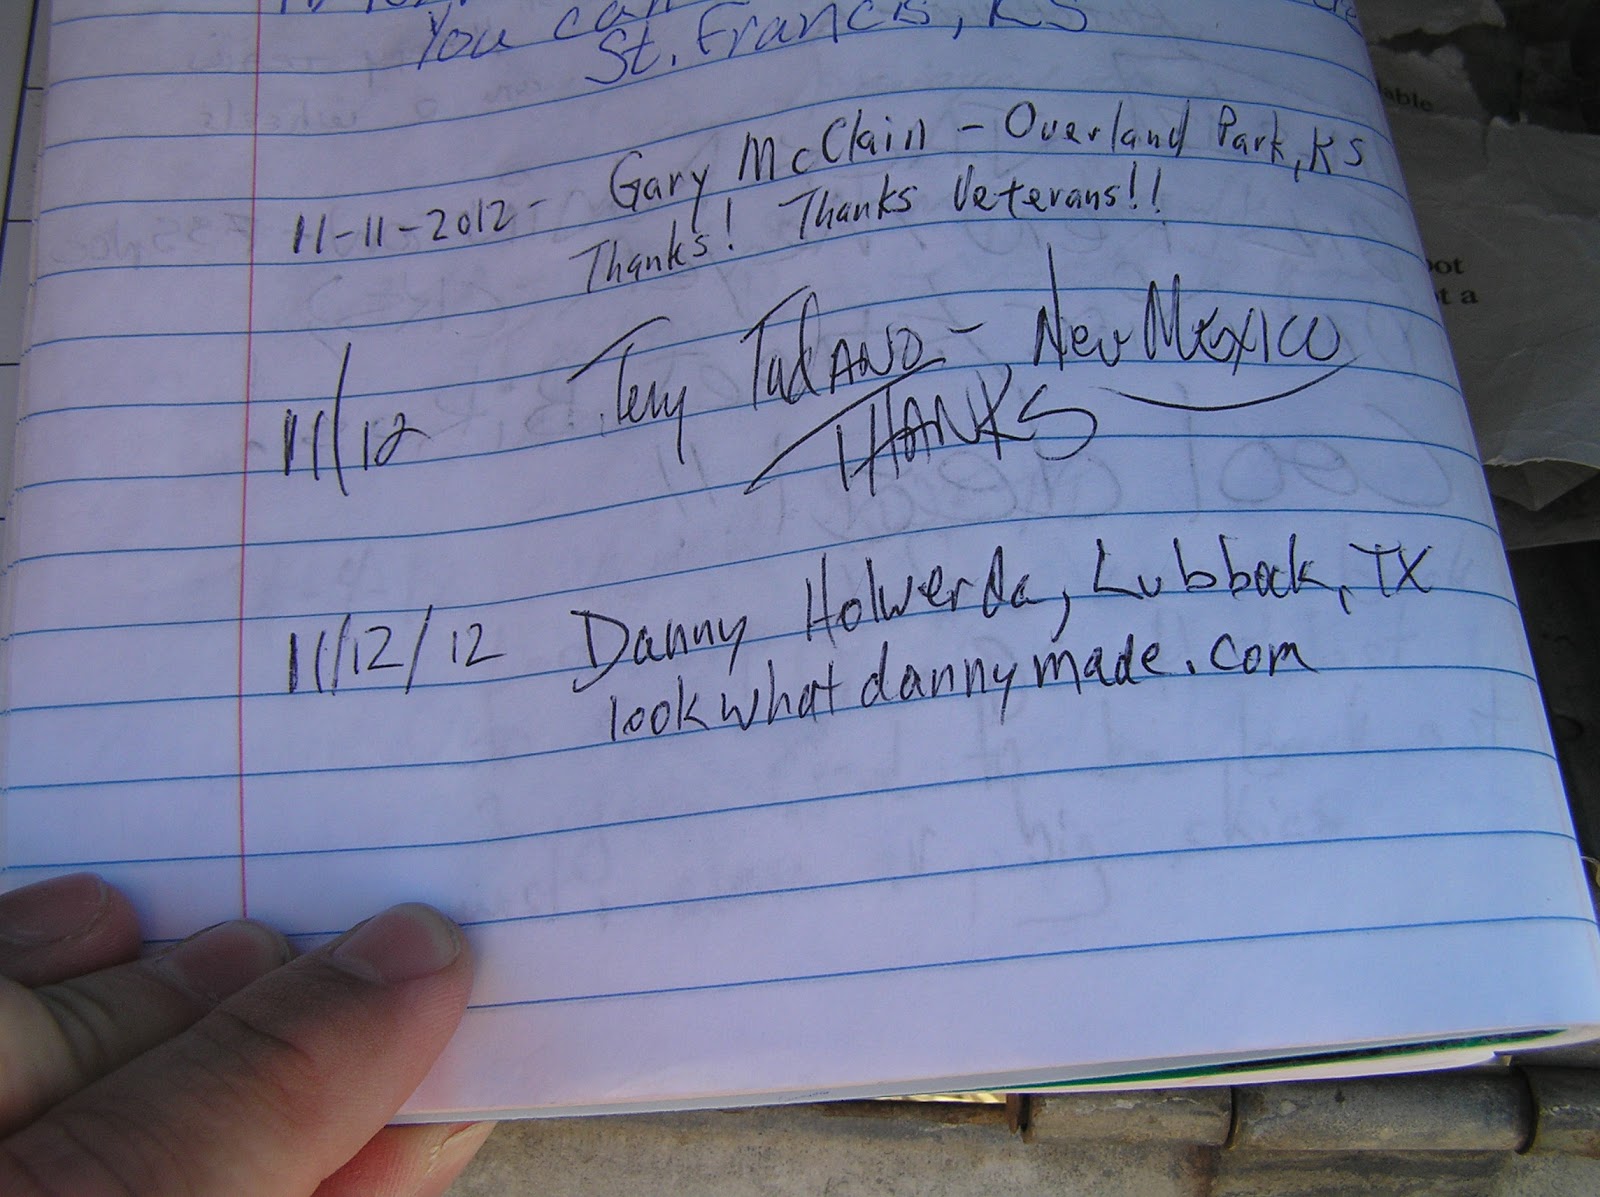 You can
St. Francis, KS
11-11-2012- Gary McClain - Overland Park, KS
Thanks! Thanks Veterans!!
11/12 - New Mexico
THANKS
11/12/12 Danny Holwerda, Lubbock, TX
lookwhatdannymade.com
able
oot
t a